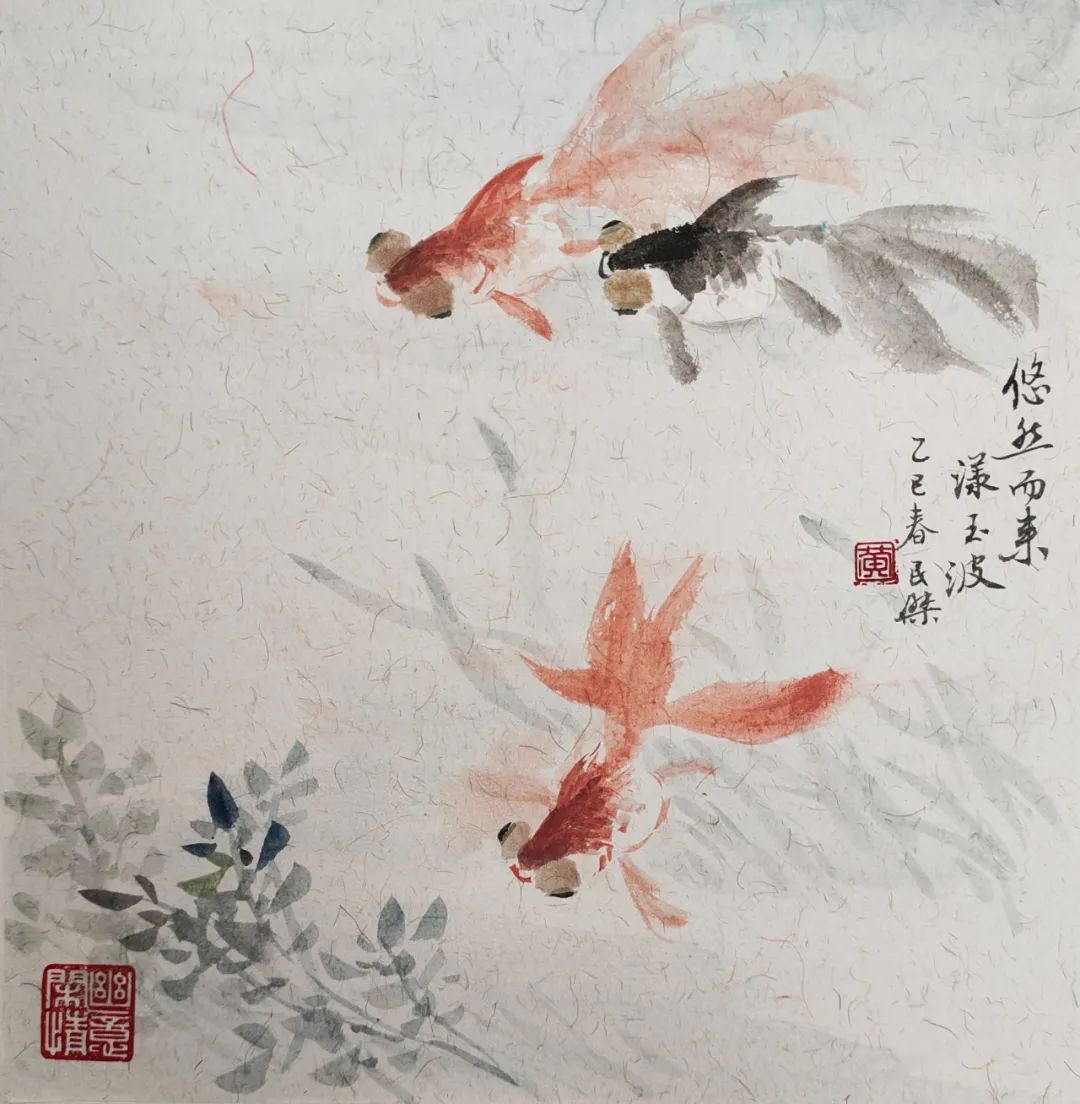 悠然而来
漾玉波
乙巳春 民杰
黄
幽意
闲情